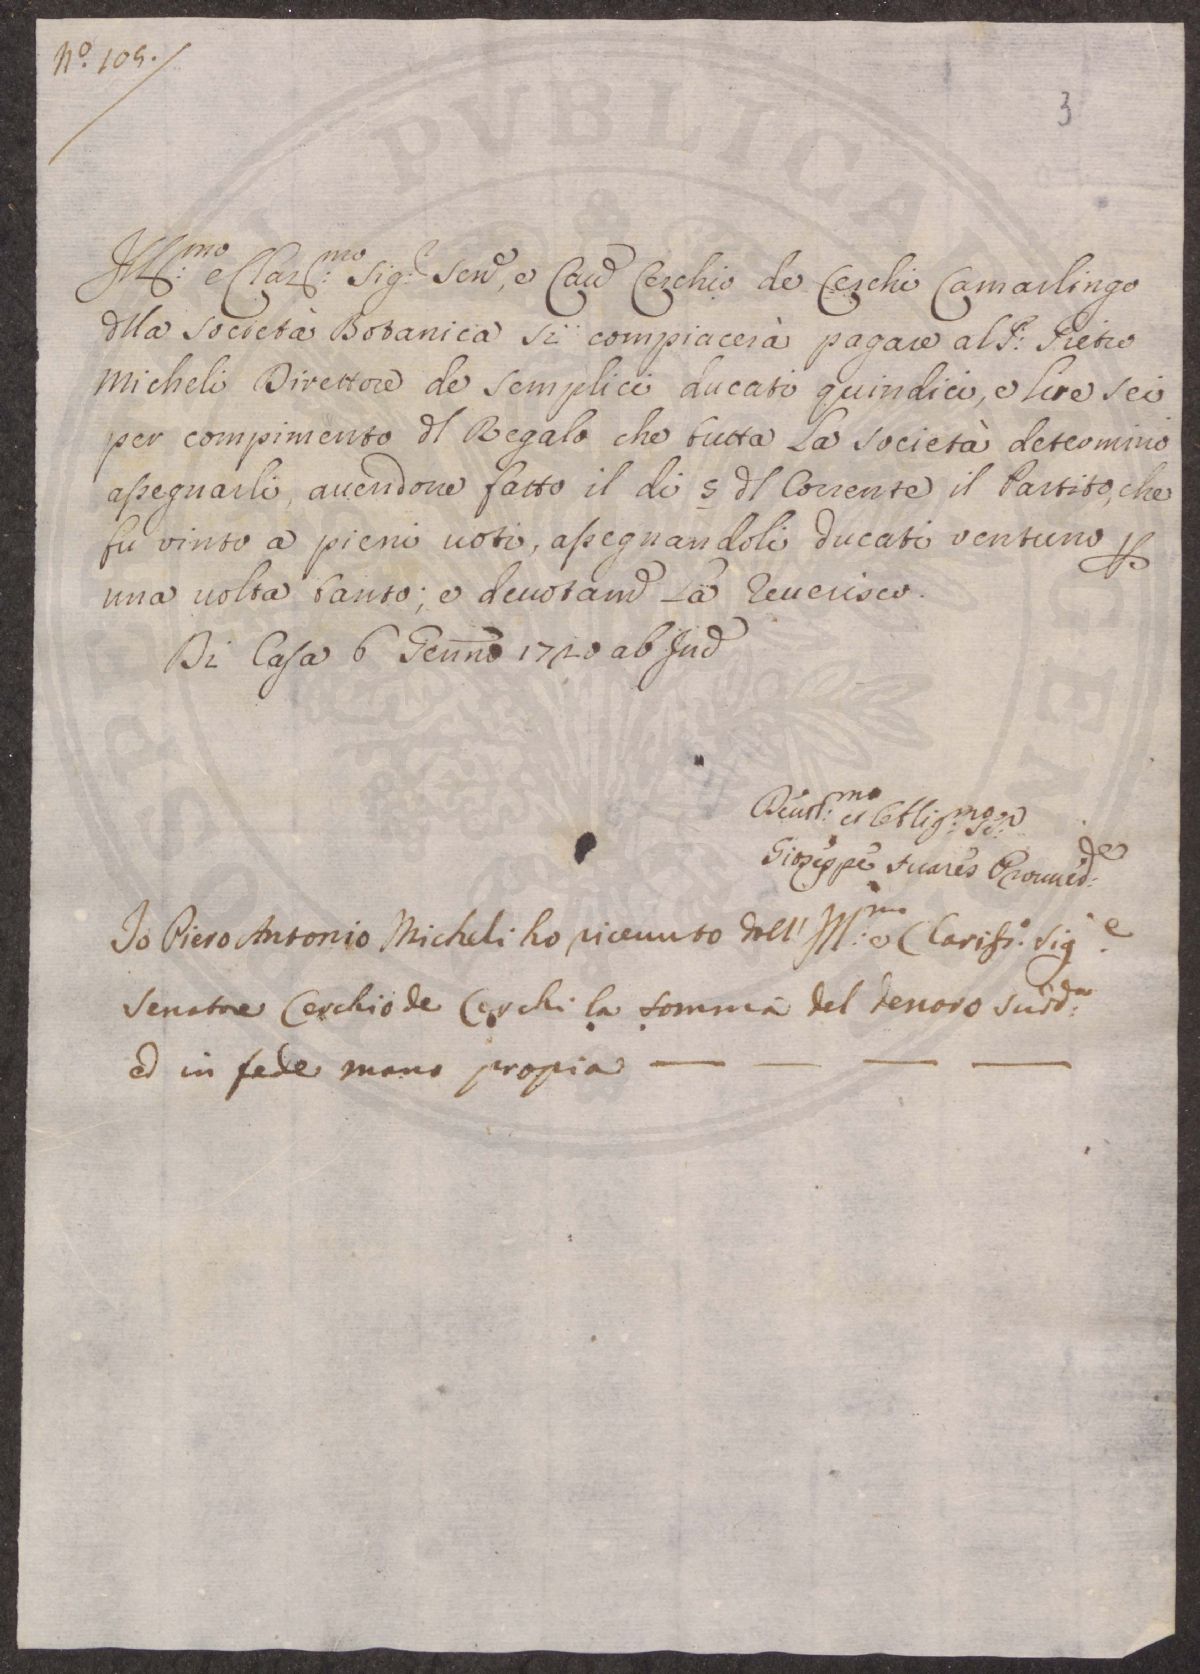 N.º 105.
3
Ill:mo e Clar:mo Sig:r Sen.e, e Cav.e Cerchio de Cerchi Camarlingo
dlla Società Botanica si compiacerà pagare al S.r Pietro
Micheli Direttore de Semplici ducati quindici, e lire sei
per compimento dl Regalo che tutta La Società determinò
assegnarli, avendone fatto il di 5 dl Corrente il Partito, che
fu vinto a pieni voti, assegnandoli Ducati ventuno p
una volta tanto; e devotam.e La Reverisco.
Di Casa 6 Genn.o 1720 ab Inc.e
Devot:mo et Oblig:mo Se:r
Gioseppe Suares Provved:re
Io Piero Antonio Micheli ho ricevuto dall' Ill:mo e Clariss:o Sig:e
Senatore Cerchio de Cerchi la somma del tenoro sudd:
ed in fede mano propia